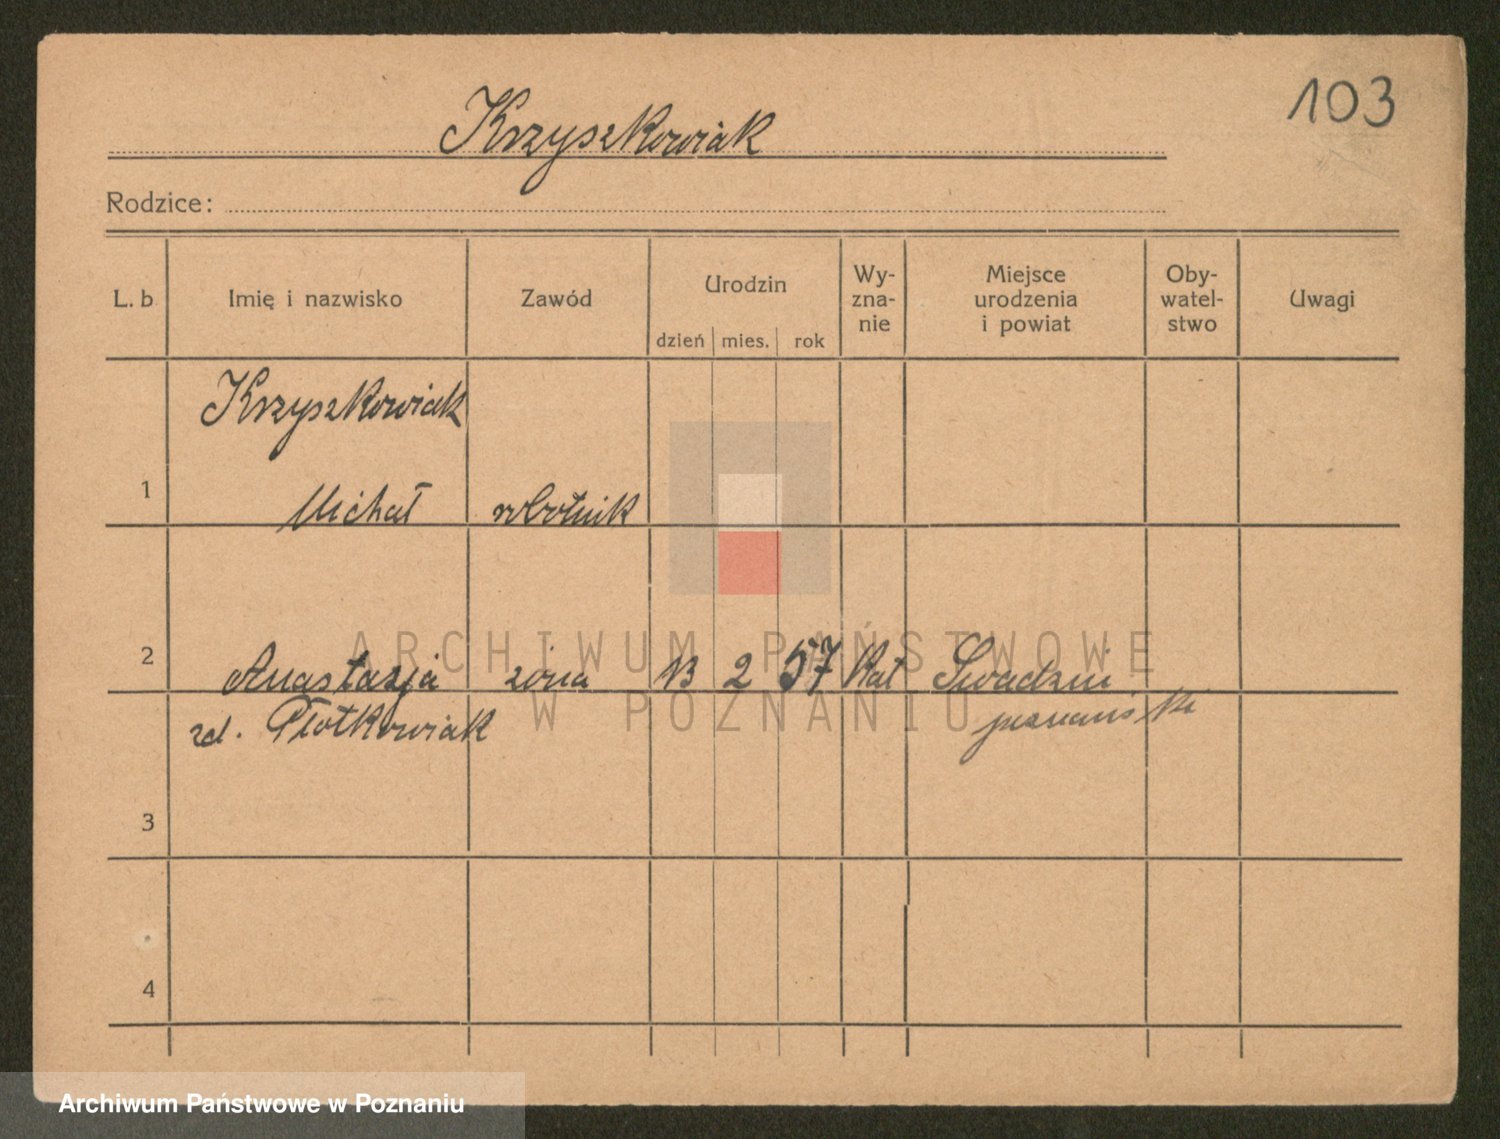 103
Krzyszkowiak
Rodzice:
L. b
Imię i nazwisko
Zawód
Urodzin
dzień mies. rok
Wy-
zna-
nie
Miejsce
urodzenia
i powiat
Oby-
watel-
stwo
Uwagi
Krzyszkowiak
1 Michał robotnik
2 Anastazja żona 13 2 57 Kat Swadzni
zd. Płotkowiak poznański
3
4
ARCHIWUM PAŃSTWOWE
W POZNANIU
Archiwum Państwowe w Poznaniu